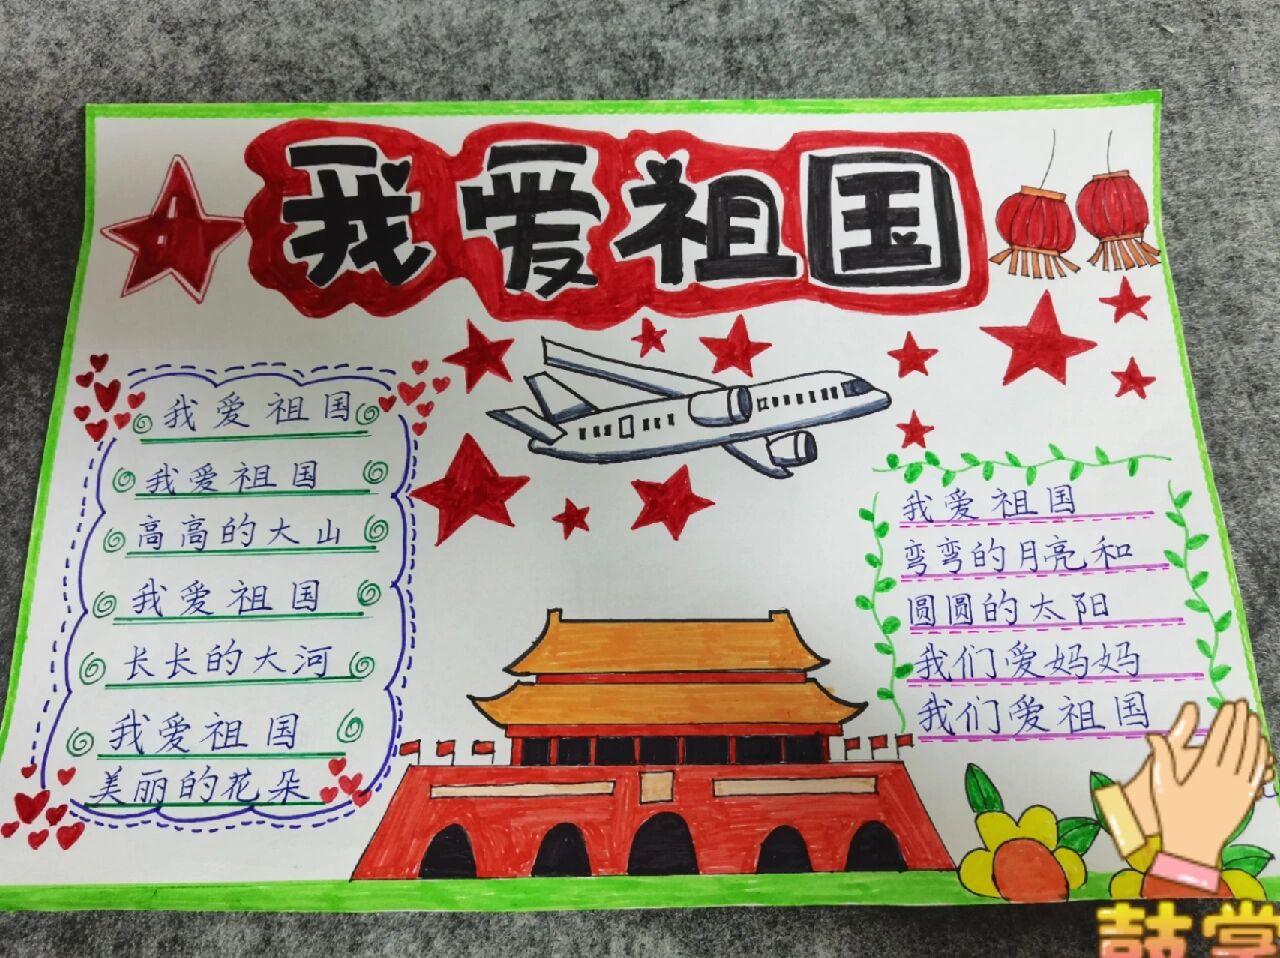 我爱祖国
我爱祖国
我爱祖国
高高的大山
我爱祖国
长长的大河
我爱祖国
美丽的花朵
我爱祖国
弯弯的月亮和
圆圆的太阳
我们爱妈妈
我们爱祖国
鼓掌